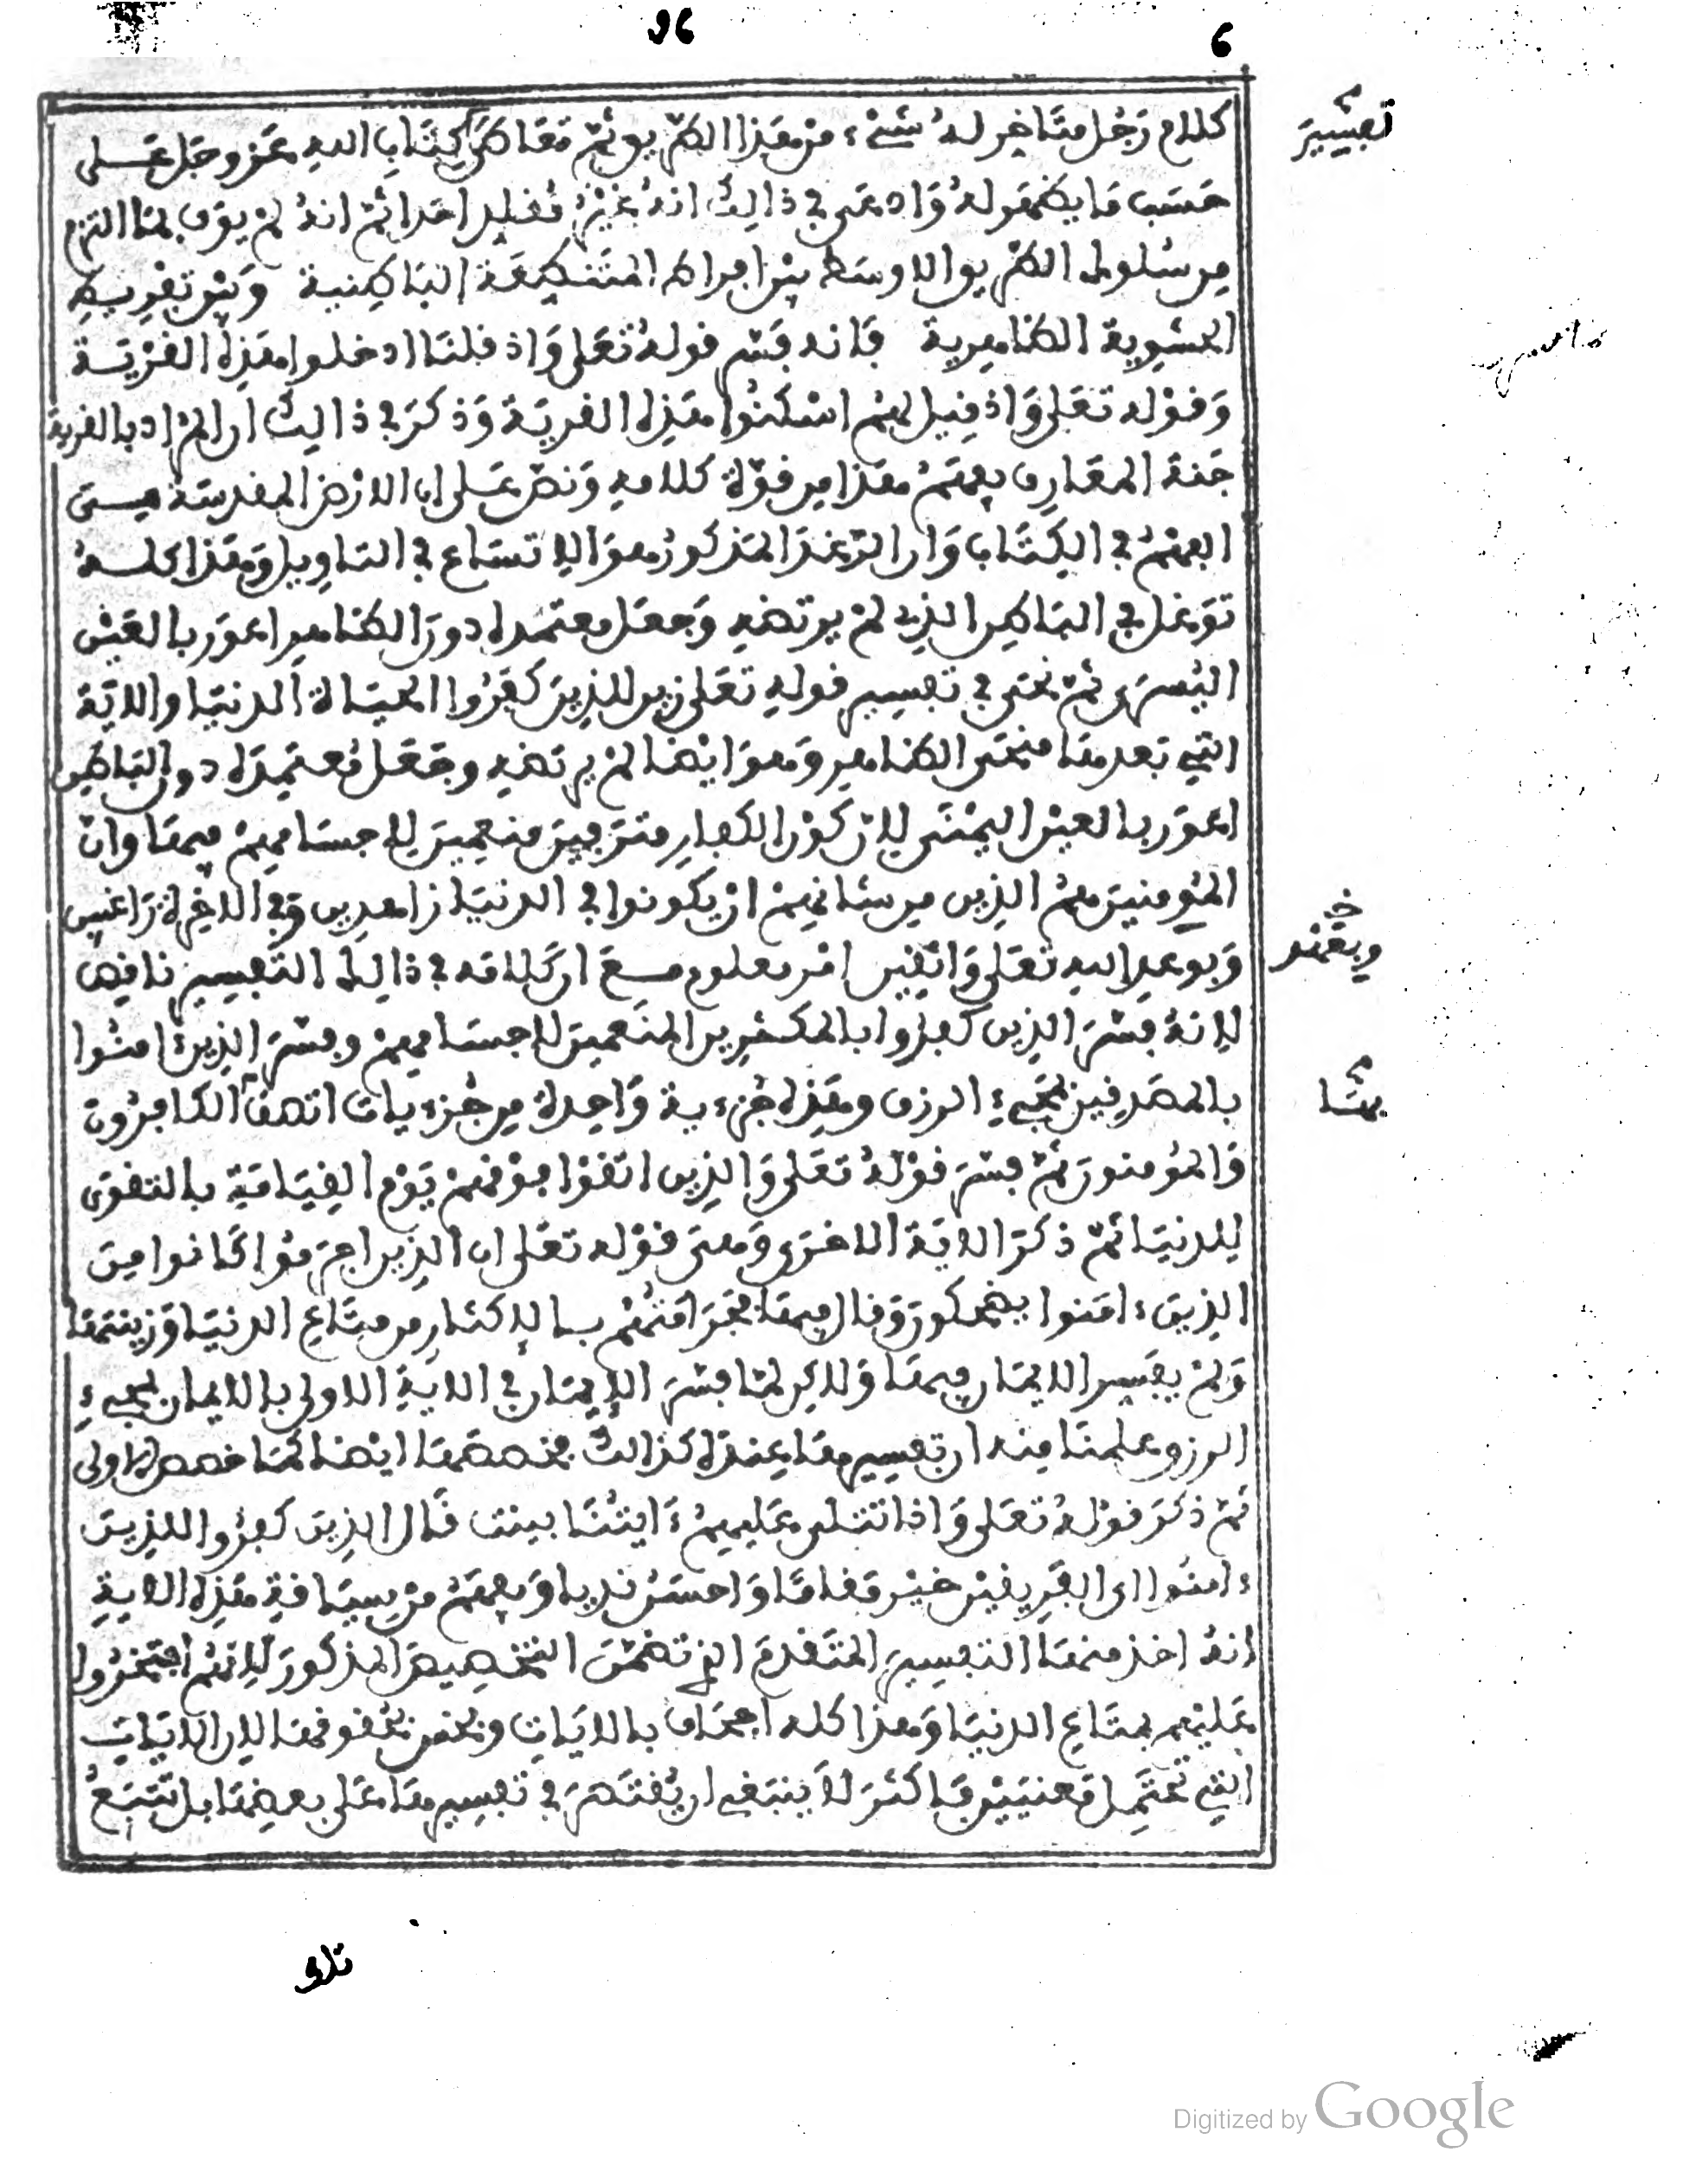 96
6
كلام رجل متاخر له شيء من هذا الطريق ثم تعاطى كتاب الله عز وجل على
تفسير
حسب ما يظهر له وادعى في ذالك انه غير مقلد احدا ثم انه لم يوف بما التزم
من سلوك الطريق الاوسط بين افراط المتنطعة الباطنية وبين تفريط
الحشوية الظاهرية فانه فسر قوله تعلى واذ قلنا ادخلوا هذه القرية
وقوله تعلى واذ قيل لهم اسكنوا هذه القرية وذكر في ذالك ان المراد بالقرية
جنة المعارف يفهم هذا من قوة كلامه ونص على ان الارض المقدسة هي
الفهم في الكتاب وان الرغد المذكور هو الاتساع في التاويل وهذا كله
توغل في الباطن الذي لم يرتضه وجعل معتمده دون الظاهر اعور بالعين
اليسرى ثم نحى في تفسير قوله تعلى زين للذين كفروا الحياة الدنيا والاية
التي بعدها منحى الظاهر وهو ايضا لم يرتضه وجعل معتمده دون الباطن
اعور بالعين اليمنى لان كون الكفار مترفين منعمين لاجسامهم فيها وان
المومنين هم الذين من شانهم ان يكونوا في الدنيا زاهدين وفي الاخرة راغبين
وبوعد الله تعلى واثقين امر معلوم مع ان كلامه في ذالك التفسير ناقص
لانه فسر الذين كفروا بالمكثرين المنعمين لاجسامهم وفسر الذين ءامنوا
بالمصدقين بمجيء الرزق وهذه جزءية واحدة من جزءيات اتصف الكافرون
بها
والمؤمنون ثم فسر قوله تعلى والذين اتقوا فوقهم يوم القيامة بالتقوى
للدنيا ثم ذكر الاية الاخرى وهي قوله تعلى ان الذين اجرموا كانوا من
الذين ءامنوا يضحكون وقال فيها اجرامهم بالاكثار من متاع الدنيا وزينتها
ولم يفسر الايمان فيها ولاكن لما فسر الايمان في الاية الاولى بالايمان بمجيء
الرزق علمنا منه ان تفسيرها عنده كذالك فخصصها ايضا كما خصص الاولى
ثم ذكر قوله تعلى واذا تتلى عليهم ءايتنا بينت قال الذين كفروا للذين
ءامنوا اي الفريقين خير مقاما واحسن نديا ويفهم من سياقة هذه الاية
انه اخذ منها التفسير المتقدم الى تضمن التخصيص المذكور لانهم افتخروا
عليهم بمتاع الدنيا وهذا كله اجحاف بالايات ونخص بحقوقها لان الايات
التي تحتمل معنيين فاكثر لا ينبغي ان يقتصر في تفسيرها على بعضها بل تتبع